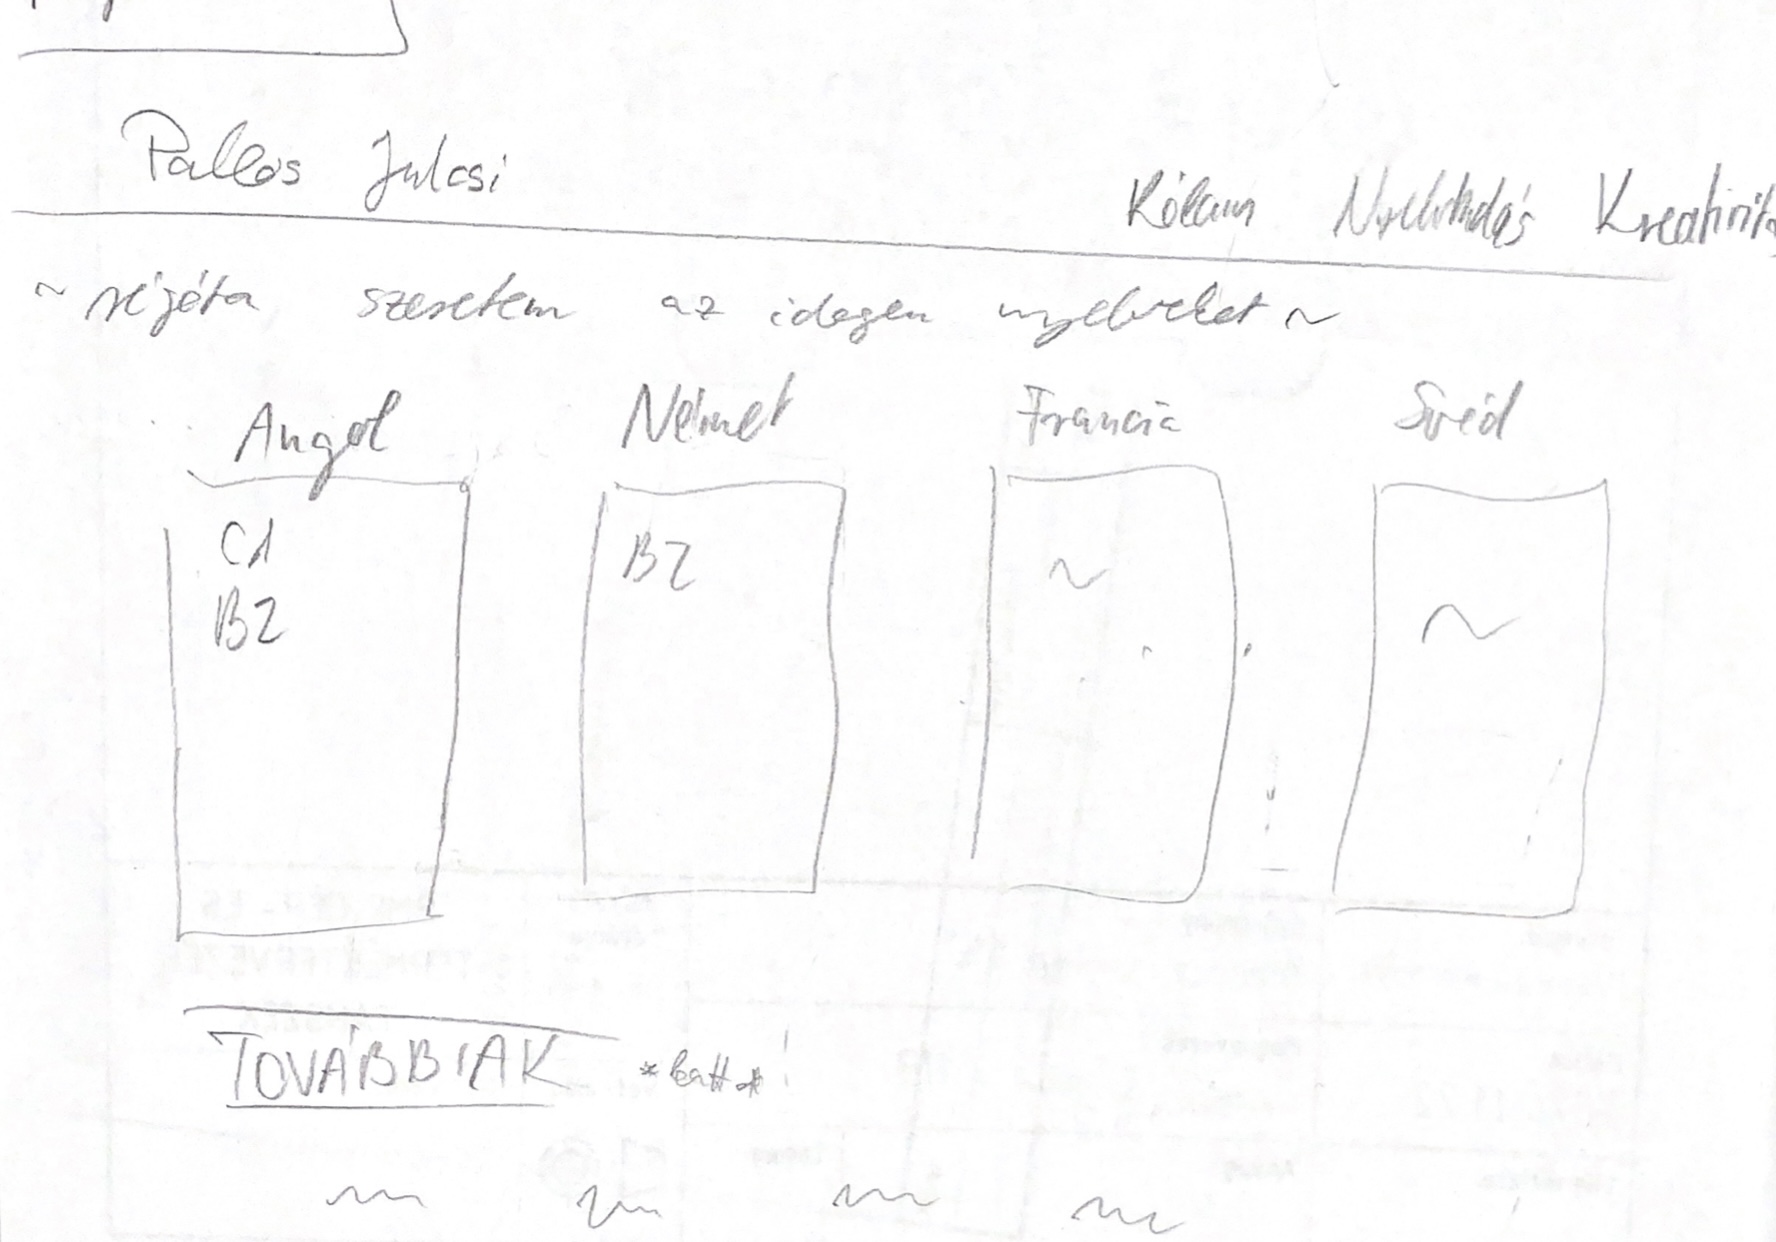 Pallos Julcsi
Rólam Nyelvtudás Kreativitá
~ régóta szeretem az idegen nyelveket ~
Angol Német Francia Svéd
C1 B2 ~ ~
B2
TOVÁBBIAK *katt*